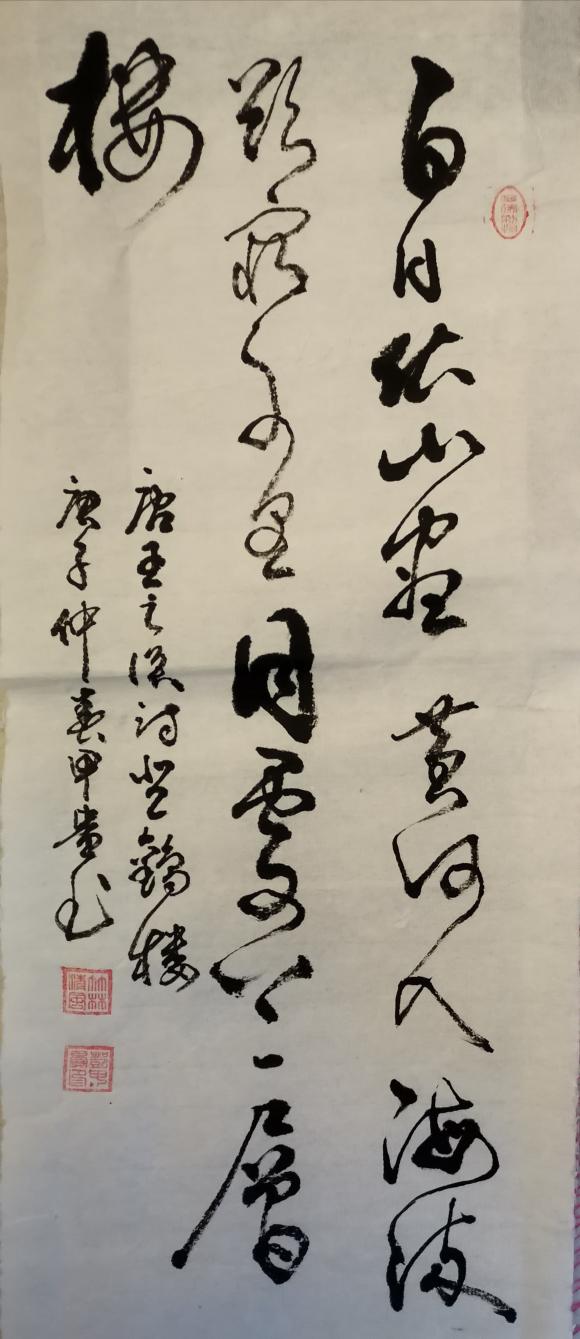 白日依山尽黄河入海流
欲穷千里目更上一层
楼
唐王之涣诗登鹳楼
庚子仲春甲贵书
竹林清风